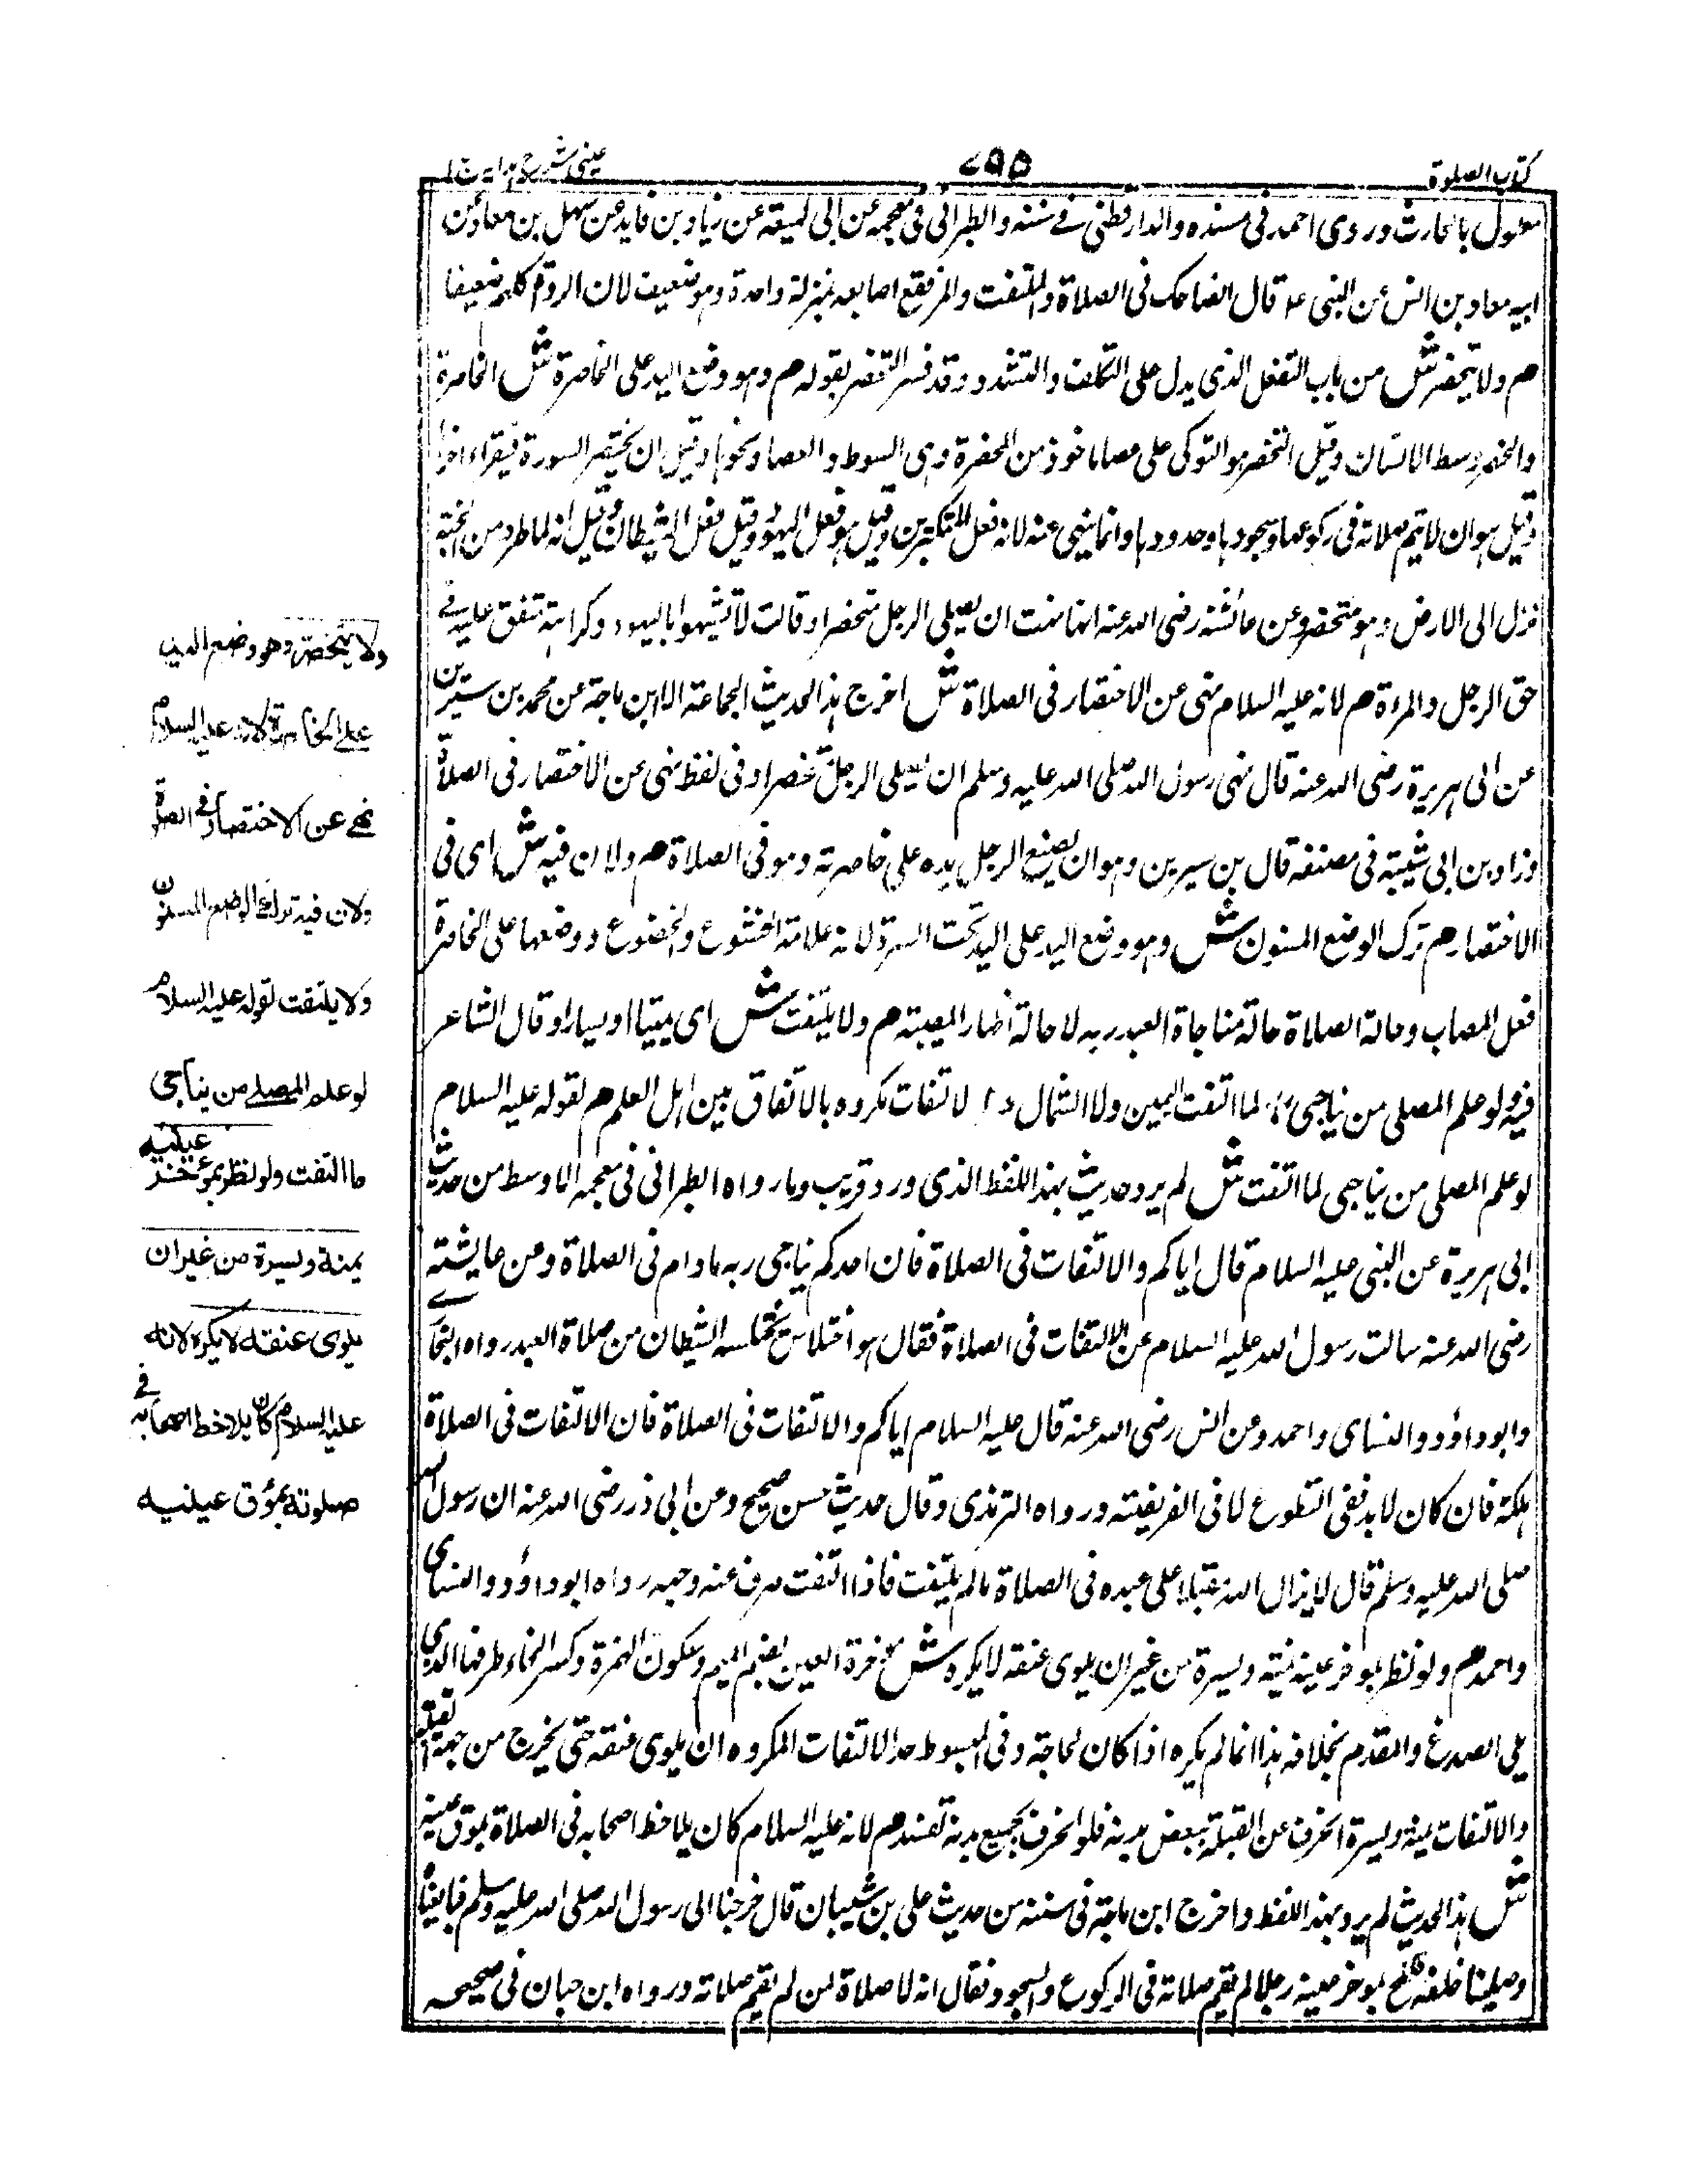 كتاب الصلوة
٧٩٥
عينى شرح هداية ج ا
معلول بالحارث وروى احمد فى مسنده والدارقطنى فے سننه والطبرانى فى معجمه عن ابى لهيعة عن زياد بن فايد عن سهل بن معاذ عن
ابيه معاذ بن انس عن النبى ء قال الضاحك فى الصلاة والملتفت والمرفقع اصابعه بمنزلة واحدة وهو ضعيف لان الرواة كلهم ضعيفا
هم ولا يتخصر ش من باب التفعل الذى يدل على التكلف والتشدد وقد فسر التخصر بقوله هم وهو وضع اليد على الخاصرة ش الخاصرة
والخصر وسط الانسان وقيل التخصر هو التوكى على عصا ماخوذ من المخصرة وهى السوط والعصا ونحوها وقيل ان يختصر السورة فيقراء اخرها
وقيل هو ان لا يتم صلاته فى ركوعها وسجودها وحدودها وانما ينهى عنه لانه فعل المتكبرين وقيل هو فعل اليهود وقيل فعل الشيطان وقيل انه لما طرد من الجنة
نزل الى الارض وهو متخصر وعن عائشة رضى الله عنه انها نهت ان يصلى الرجل متخصرا وقالت لا تشبهوا باليهود وكراهته متفق عليه فے
حق الرجل والمراة هم لانه عليه السلام نهى عن الاختصار فى الصلاة ش اخرج هذا الحديث الجماعة الا ابن ماجة عن محمد بن سيرين
عن ابى هريرة رضى الله عنه قال نهى رسول الله صلى الله عليه وسلم ان يصلى الرجل مختصرا وفى لفظ نهى عن الاختصار فى الصلاة
وزاد بن ابى شيبة فى مصنفه قال بن سيرين وهو ان يضع الرجل يده على خاصرته وهو فى الصلاة هم ولان فيه ش اى فى
الاختصار هم ترك الوضع المسنون ش وهو وضع اليد على اليد تحت السرة لانه علامة الخشوع والخضوع ووضعها على الخاصرة
فعل المصاب وحالة الصلاة حالة مناجاة العبد ربه لا حالة اظهار المصيبة هم ولا يلتفت ش اى يمينا او يسارا وقال الشاعر
فيه ولو علم المصلى من يناجى ؛؛ لما التفت اليمين ولا الشمال و؛ لا تفات مكروه بالاتفاق بين اهل العلم هم لقوله عليه السلام
لو علم المصلى من يناجى لما التفت ش لم يرد حديث بهذا اللفظ الذى ورد قريب وما رواه الطبرانى فى معجمه الاوسط من حديث
ابى هريرة عن النبى عليه السلام قال اياكم والالتفات فى الصلاة فان احدكم يناجى ربه مادام فى الصلاة وعن عايشة
رضى الله عنه سالت رسول الله عليه السلام عن الالتفات فى الصلاة فقال هو اختلاس يختلسه الشيطان من صلاة العبد رواه البخارے
وابو داؤد والنساى واحمد وعن انس رضى الله عنه قال عليه السلام اياكم والالتفات فى الصلاة فان الالتفات فى الصلاة
هلكة فان كان لابد ففى التطوع لا فى الفريضة ورواه الترمذى وقال حديث حسن صحيح وعن ابى ذر رضى الله عنه ان رسول الله
صلى الله عليه وسلم قال لا يزال الله مقبلا على عبده فى الصلاة مالم يلتفت فاذا التفت صرف عنه وجهه رواه ابو داؤد والنساى
واحمد هم ولو نظر بموخر عينه يمنة ويسرة من غير ان يلوى عنقه لا يكره ش مؤخرة العين بضم الميم وسكون الهمزة وكسر الخاء طرفها الذى
يلى الصدغ والمقدم بخلافه هذا انما لم يكره اذا كان لحاجة وفى المبسوط حد الالتفات المكروه ان يلوى عنقه حتى يخرج من جهة القبلة
والالتفات يمنة ويسرة انحرف عن القبلة ببعض بدنه فلو انحرف بجميع بدنه تفسد هم لانه عليه السلام كان يلاحظ اصحابه فى الصلاة بموق عينيه
ش هذا الحديث لم يرد بهذا اللفظ واخرج ابن ماجة فى سننه من حديث على بن شيبان قال خرجنا الى رسول الله صلى الله عليه وسلم فبايعناه
وصلينا خلفه فلمح بموخر عينه رجلا لم يقم صلاته فى الركوع والسجود فقال انه لا صلاة لمن لم يقم صلاته ورواه ابن حبان فى صحيحه
ولا يتخصر وهو وضع اليد
على الخاصرة لانه عليه السلام
نهے عن الاختصار فى الصلوة
ولان فيه ترك الوضع المسنون
ولا يلتفت لقوله عليه السلام
لو علم المصلے من يناجى
ما التفت ولو نظر بمؤخر عينيه
يمنة ويسرة من غير ان
يلوى عنقه لا يكره لانه
عليه السلام كان يلاحظ اصحابه فے
صلوته بمؤق عينيه